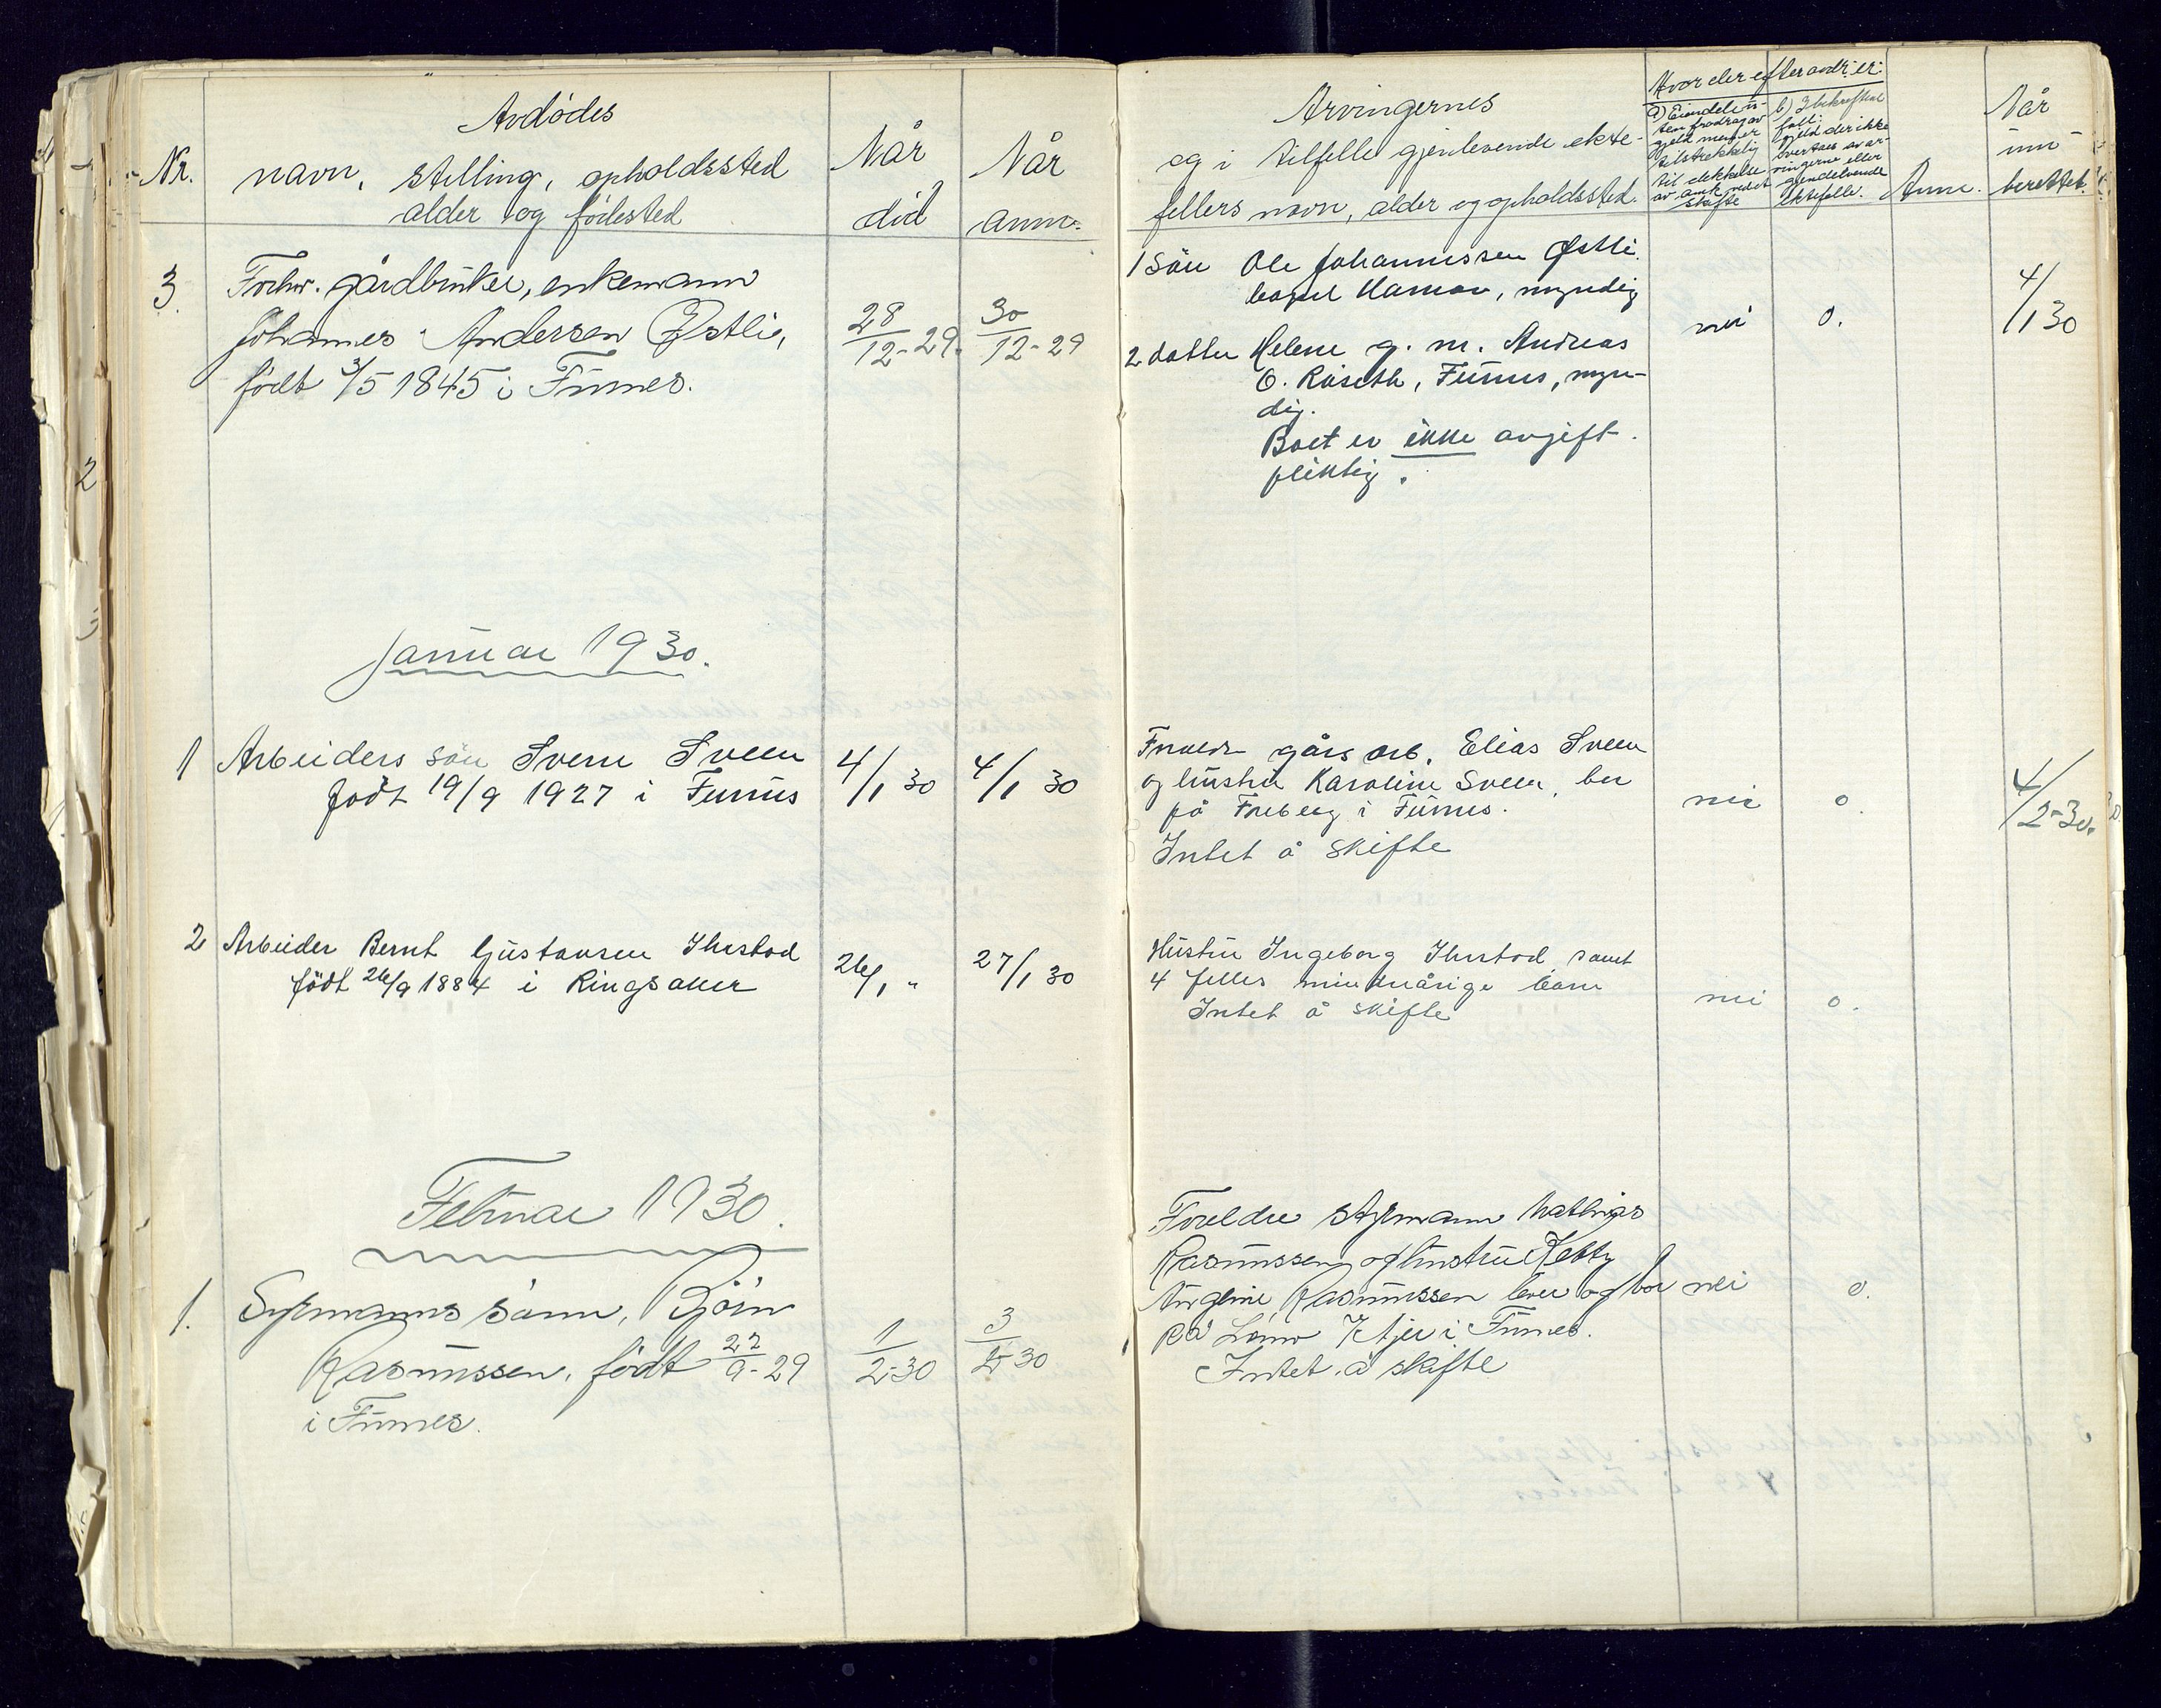 Avdødes
Nr.
navn, stilling, opholdssted
alder og fødested
Når
død
Når
anm.
3
Forhv. gårdbruker, enkemann
Johannes Andersen Østlie,
født 3/5 1845 i Furnes.
28/12-29.
30/12-29
Januar 1930.
1
Arbeiders søn Svein Sveen
født 19/9 1927 i Furnes
4/1 30
4/1 30
2
Arbeider Bernt Gustavsen
født 26/9 1884 i Ringsaker
26/1 "
27/1 30
Februar 1930.
1.
Styrmanns sønn, Bjørn
Rasmussen, født 22/9-29
i Furnes.
1/2-30
3/2-30
Arvingernes
og i tilfelle gjenlevende ekte-
fellers navn, alder og opholdssted.
Hvor der efterladt er:
a) Eiendeler
fradrag av
gjeld
tilstrekkelig
til dekkelse
av omk. ved et
skifte
b) I bekreftende
fall:
gjeld der ikke
overtaes av ar-
vingerne eller
gjenlevende
ektefelle.
Anm.
Når
inn-
berettet.
1 søn Ole Johannessen Østli.
bopel Hamar, myndig
2 datter Helene g. m. Andreas
O. Røseth, Furnes, myn-
dig.
Boet er ikke avgift-
pliktig.
nei
0.
4/1 30
Foreldr gårs arb. Elias Sveen
og hustru Karoline Sveen, bor
på Freberg i Furnes.
Intet å skifte
nei
0.
4/2-30.
Hustru Ingeborg samt
4 felles mindreårige barn
Intet å skifte
nei
0.
Foreldre styrmann Mathias
Rasmussen og hustru Ketty
Rasmussen lever og bor
på i Furnes.
Intet å skifte
nei
0.